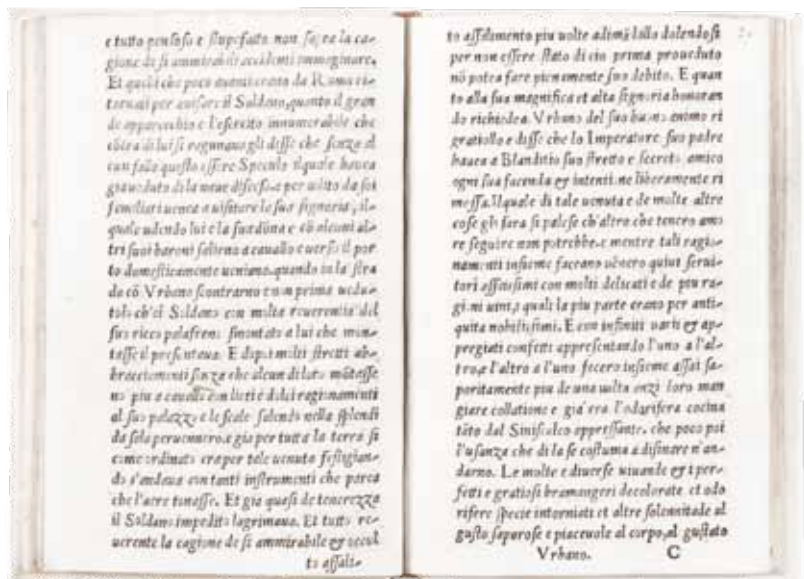 e tutto pensoso e stupefatto non sapea la ca-
gione de si ammirabili accidenti immaginare.
Et quelli che poco auanti erano da Roma ri-
tornati per auisare il Soldano, quanto il gran
de apparecchio e l'esercito innumerabile che
cõtra di lui si regunaua gli disse che senza al
cun fallo questo essere Speculo ilquale hauea
di la neue e per udito da soi
familiari uenea a uisitare la sua signoria, il-
quale udendo lui e la sua dõna e cõ alcuni al-
tri suoi baroni salirno a cauallo e uerso il por
to domesticamente ueniano, quando in la stra
da cõ Vrbano scontrarno e non prima uedu-
tolo ch'el Soldano con molta reuerentia del
suo ricco palafreno smontato a lui che mon-
tasse il presentaua. E dipoi molti stretti ab-
bracciamenti senza che alcun di loro mõtasse
no piu a cauallo con lieti e dolci ragionamenti
al suo palazzo e le scale salendo nella splendi
da sala peruennero, e gia per tutta la terra si
come ordinato era per tale uenuta festigian-
do s'andaua con tanti instrumenti che parea
che l'aere tonasse. Et gia quasi de tenerezza
il Soldano impedito lagrimaua. Et tutto re-
uerente la cagione de si ammirabile & occul
to assali-
to assalimento piu uolte adimãdollo dolendosi
per non essere stato di cio prima proueduto
nõ potea fare pienamente suo debito. E quan
to alla sua magnifica et alta signoria honoran
do richiedea. Vrbano del suo buono animo ri
gratiollo e disse che lo Imperatore suo padre
hauea a Blanditio suo stretto e secreto amico
ogni sua facenda & intentione liberamente ri
messa. Ilquale di tale uenuta e de molte altre
cose gli fara si palese ch'altro che tenero amo
re seguire non potrebbe. e mentre tali ragio-
namenti insieme faceano uẽnero quiui serui-
tori assaissimi con molti delicati e de piu ra-
gioni uini, quali la piu parte erano per anti-
quita nobilissimi. E con infiniti uarii & ap-
pregiati confetti appresentando l'uno a l'al-
tro, e l'altro a l'uno fecero insieme assai sa-
poritamente piu de una uolta anzi loro man
giare collatione e gia era l'odorifera cocina
tãto dal Siniscalco appressante, che poco poi
l'usanza che di la se costuma a disinare n'an-
darno. Le molte e diuerse uiuande & i per-
fetti e gratiosi bramangeri decolorate et odo
rifere specie intorniati et altre solennitade al
gusto saporose e piaceuole al corpo, al gustato
Vrbano. C